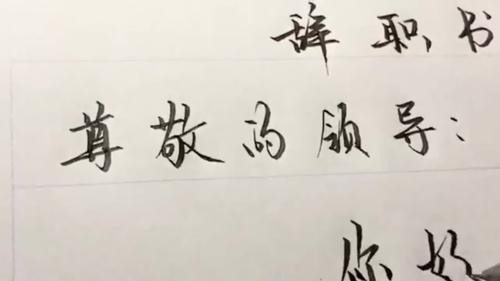 辞职书
尊敬的领导:
你好